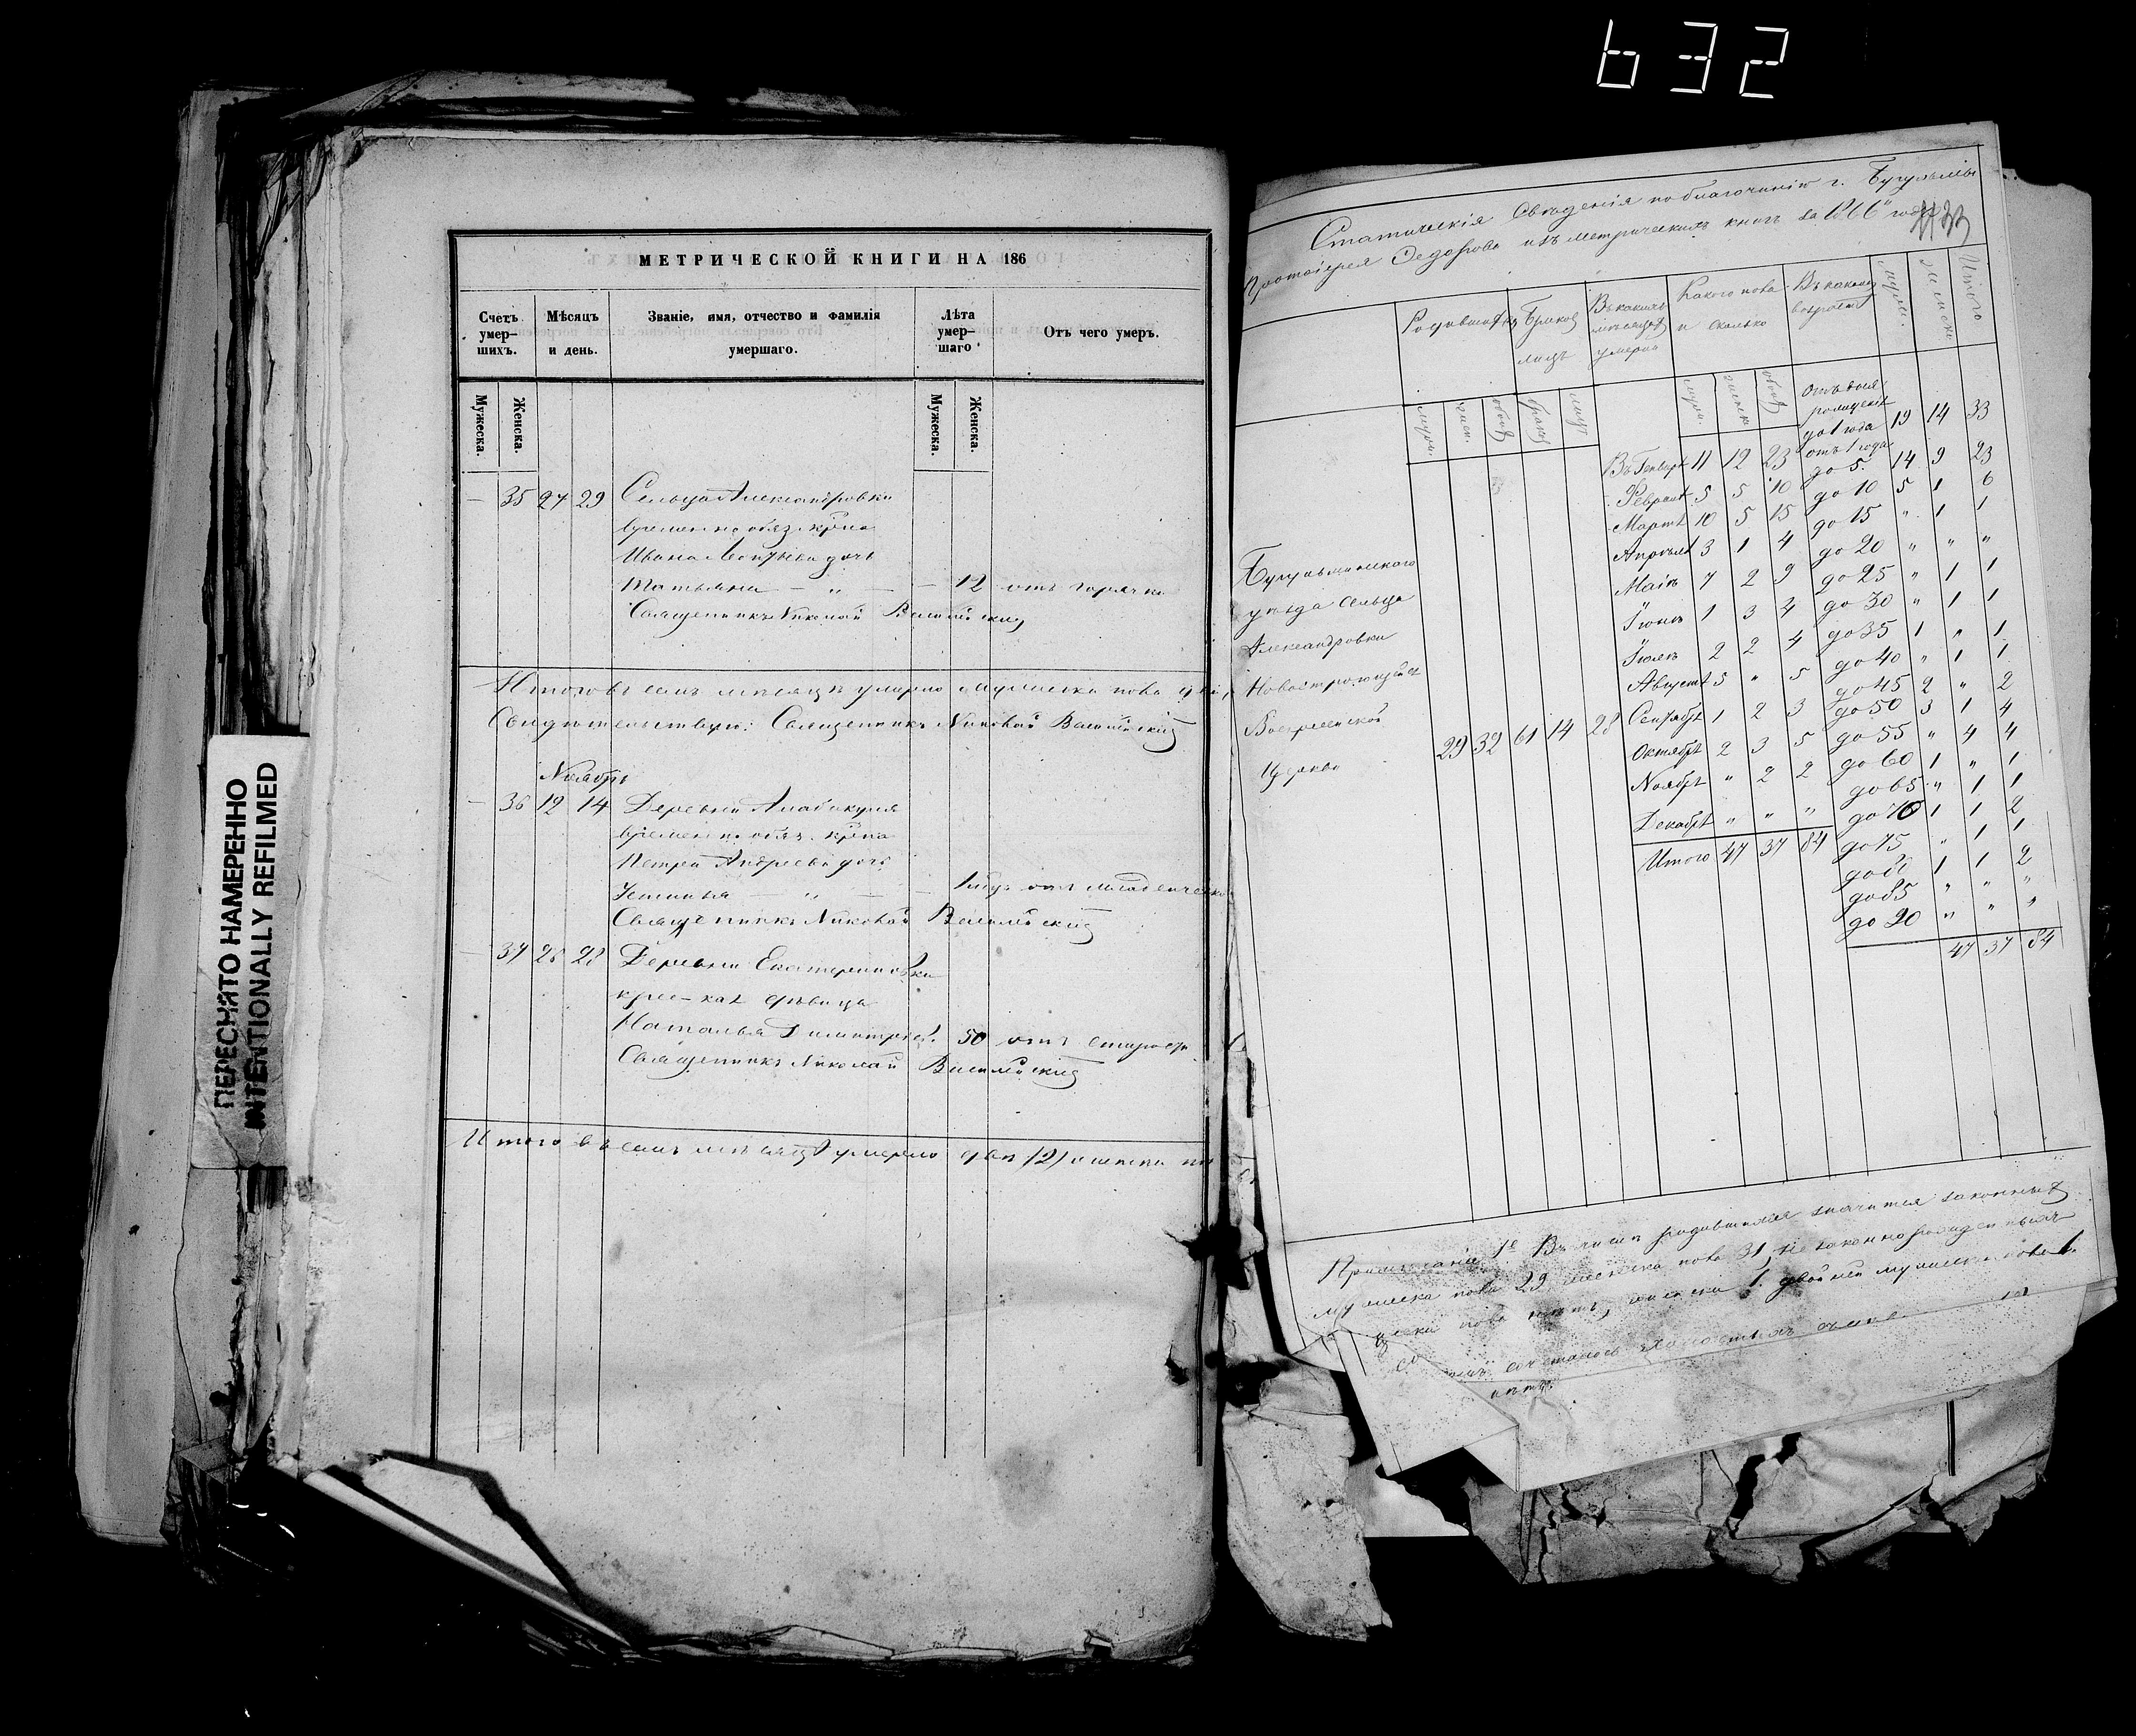 632
ПЕРЕСНЯТО НАМЕРЕННО
INTENTIONALLY REFILMED
МЕТРИЧЕСКОЙ КНИГИ НА 186
Счетъ умер– шихъ.
Мѣсяцъ и день.
Званіе, имя, отчество и фамилія умершаго.
Лѣта умер– шаго
Отъ чего умеръ.
Мужеска.
Женска.
Мужеска.
Женска.
— 35 27 29 Сельца Александровки
временно обяз. крѣна
Ивана Леонтьева дочь
Татьяна — „ — — 12 отъ горячки
Священникъ Николай Василійскій
Итого въ семъ мѣсяцѣ умерло мужеска пола
Свидѣтельствую: Священникъ Николай Василійскій
Ноябрь
— 36 12 14 Деревни
временно обяз. крѣна
Петра Андреева дочь
Устинья — „ — — отъ младенческой
Священникъ Николай Василійскій
— 37 26 28 Деревни Екатериновки
крес–кая дѣвица
Наталья Димитріев. 50 отъ старости
Священникъ Николай Василійскій
Итого въ семъ мѣсяцѣ умерло двѣ (2) женска по
Статическія Свѣденія по благочинію г. Бугульмы
Протоіерея Федорова изъ метрическихъ книгъ за 1866 годъ
Родившихся
Браков лицъ
Въ какихъ мѣсяцахъ умерло
Какого пола и сколько
Въ какомъ возрастѣ
муж.
женск
Итого
муж.
жен.
обоег
брако
лицъ
муж.
женск
обоег
Отъ дня рожденія до 1 года 19 14 33
Въ Генварѣ 11 12 23 отъ 1 года до 5. 14 9 23
Февралѣ 5 5 10 до 10 5 1 6
Мартѣ 10 5 15 до 15 „ 1 1
Апрѣлѣ 3 1 4 до 20 „ „ „
Маіѣ 7 2 9 до 25 „ 1 1
Іюнѣ 1 3 4 до 30 „ 1 1
Іюлѣ 2 2 4 до 35 1 „ 1
Августѣ 5 „ 5 до 40 „ 1 1
до 45 2 „ 2
Сентябрѣ 1 2 3 до 50 3 1 4
Октябрѣ 2 3 5 до 55 „ 4 4
Ноябрѣ „ 2 2 до 60 1 „ 1
до 65 „ 1 1
Декабрѣ „ „ „ до 70 1 1 2
Итого 47 37 84 до 75 „ 1 1
до 80 1 1 2
до 85 „ „ „
до 90 „ „ „
47 37 84
Бугульминскаго
уѣзда сельца
Александровки
Новостроющейся
Воскресенской
Церкви
29 32 61 14 28
Примѣчаніе 1е Въ числѣ родившихся значится законныхъ
мужеска пола 29 женска пола 31, незаконнорожденныхъ
пола нѣтъ, женска 1. двойней мужеска пола 1.
нѣтъ.